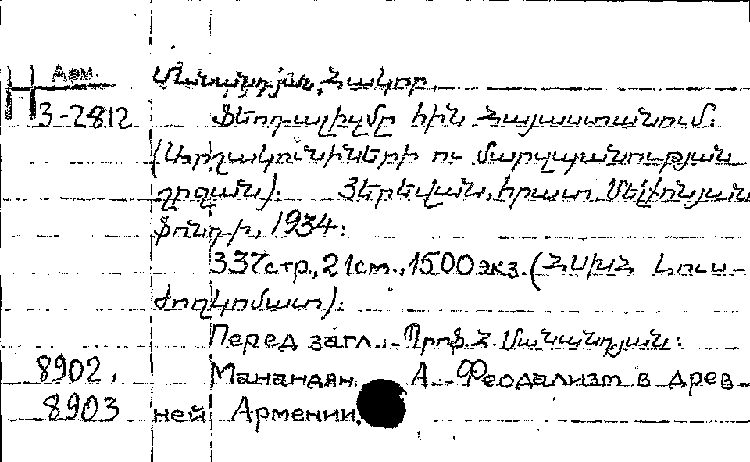 Арм.
Մանանդյան, Հակոբ.
Н 3-2812 Ֆեոդալիզմը հին Հայաստանում:
(Արշակունիների ու մարզպանության
շրջան): Յերեվան, հրատ. Մելքոնյան
ֆոնդի, 1934:
337 стр., 21 см., 1500 экз. (ՀՍԽՀ Լուս-
ժողկոմատ):
Перед загл.: Պրոֆ. Հ. Մանանդյան:
8902, Манандян А. Феодализм в древ-
8903 ней Армении.